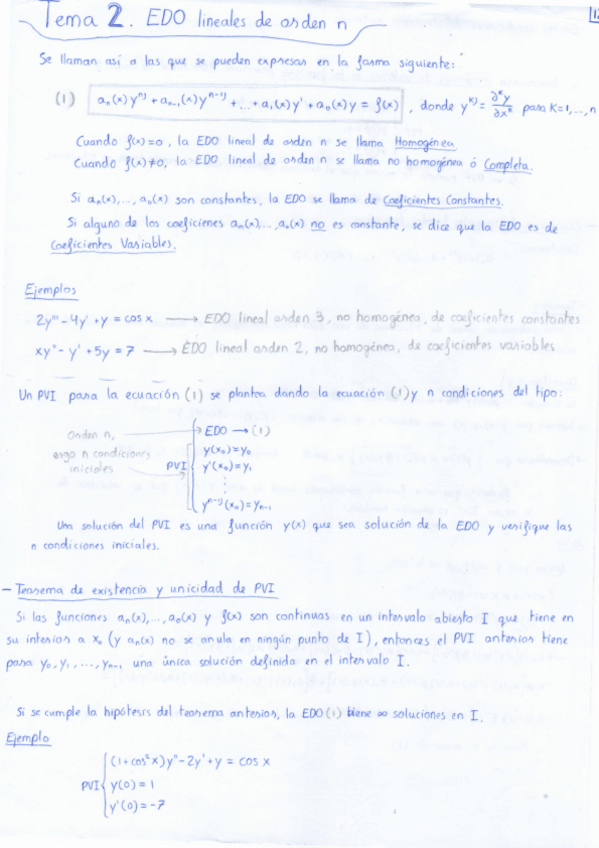 Tema 2. EDO lineales de orden n
12
Se llaman así a las que se pueden expresar en la forma siguiente:
(1) aₙ(x)yⁿ⁾ + aₙ₋₁(x)yⁿ⁻¹⁾ + ... + a₁(x)y' + a₀(x)y = f(x) , donde yᴷ⁾ = ∂ᴷy/∂xᴷ para K=1,...,n
Cuando f(x)=0, la EDO lineal de orden n se llama Homogénea
Cuando f(x)≠0, la EDO lineal de orden n se llama no homogénea ó Completa.
Si aₙ(x),..., a₀(x) son constantes, la EDO se llama de Coeficientes Constantes.
Si alguno de los coeficienes aₙ(x),...,a₀(x) no es constante, se dice que la EDO es de
Coeficientes Variables.
Ejemplos
2y''' - 4y' + y = cos x → EDO lineal orden 3, no homogénea, de coeficientes constantes
xy'' - y' + 5y = 7 → EDO lineal orden 2, no homogénea, de coeficientes variables
Un PVI para la ecuación (1) se plantea dando la ecuación (1) y n condiciones del tipo:
Orden n, → EDO → (1)
ergo n condiciones y(x₀)=y₀
iniciales PVI y'(x₀)=y₁
⋮
yⁿ⁻¹⁾(x₀)=yₙ₋₁
Una solución del PVI es una función y(x) que sea solución de la EDO y verifique las
n condiciones iniciales.
- Teorema de existencia y unicidad de PVI
Si las funciones aₙ(x),...,a₀(x) y f(x) son continuas en un intervalo abierto I que tiene en
su interior a x₀ (y aₙ(x) no se anula en ningún punto de I), entonces el PVI anterior tiene
para y₀, y₁, ..., yₙ₋₁ una única solución definida en el intervalo I.
Si se cumple la hipótesis del teorema anterior, la EDO (1) tiene ∞ soluciones en I.
Ejemplo
(1+cos²x)y'' - 2y' + y = cos x
PVI y(0) = 1
y'(0) = -7